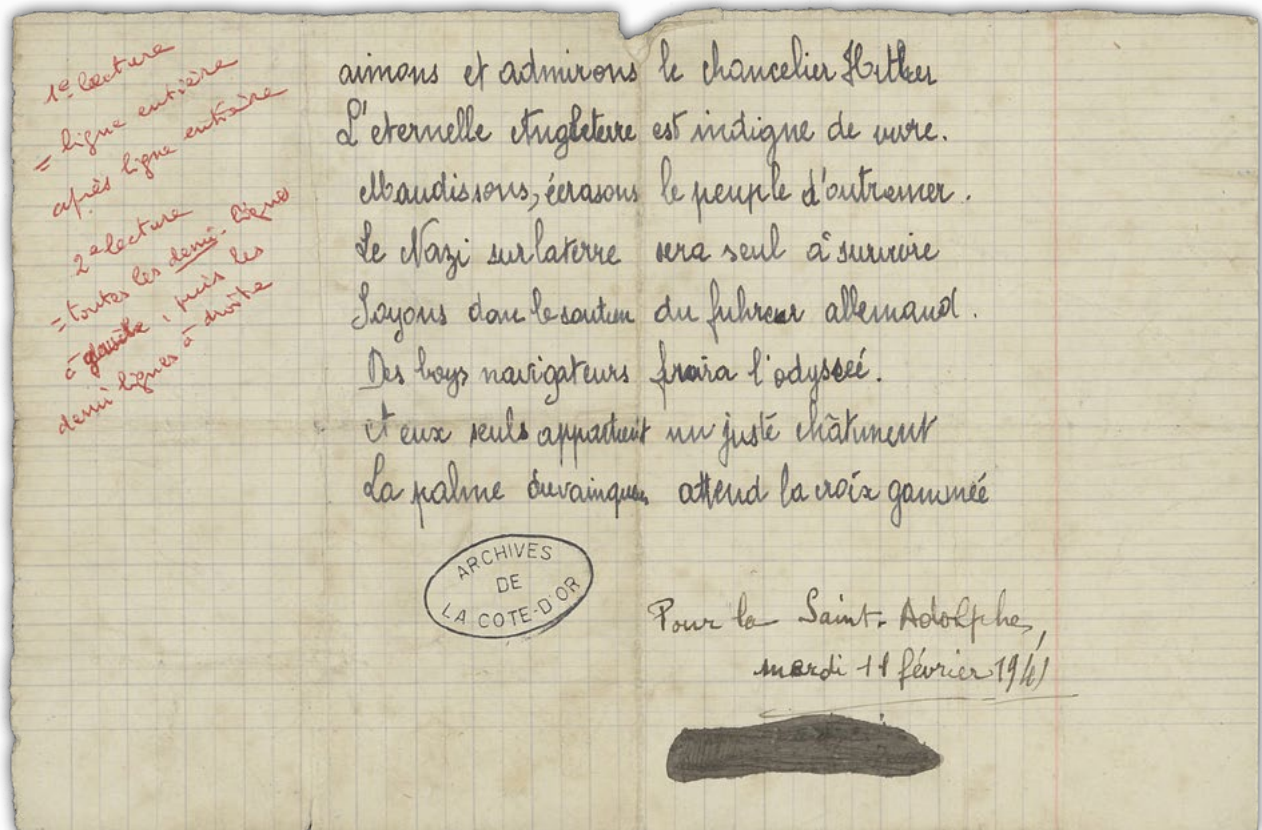 1e lecture
= ligne entière
après ligne entière
2e lecture
= toutes les demi-lignes
à gauche, puis les
demi lignes à droite
aimons et admirons le chancelier Hitler
L'eternelle Angleterre est indigne de vivre.
Maudissons, écrasons le peuple d'outremer.
Le Nazi sur la terre sera seul à survivre
Soyons donc le soutien du fuhreur allemand.
Des boys navigateurs finira l'odysseé.
A eux seuls appartient un juste châtiment
La palme du vainqueur attend la croix gammeé
ARCHIVES
DE
LA COTE-D'OR
Pour la Saint-Adolphe,
mardi 11 février 1941